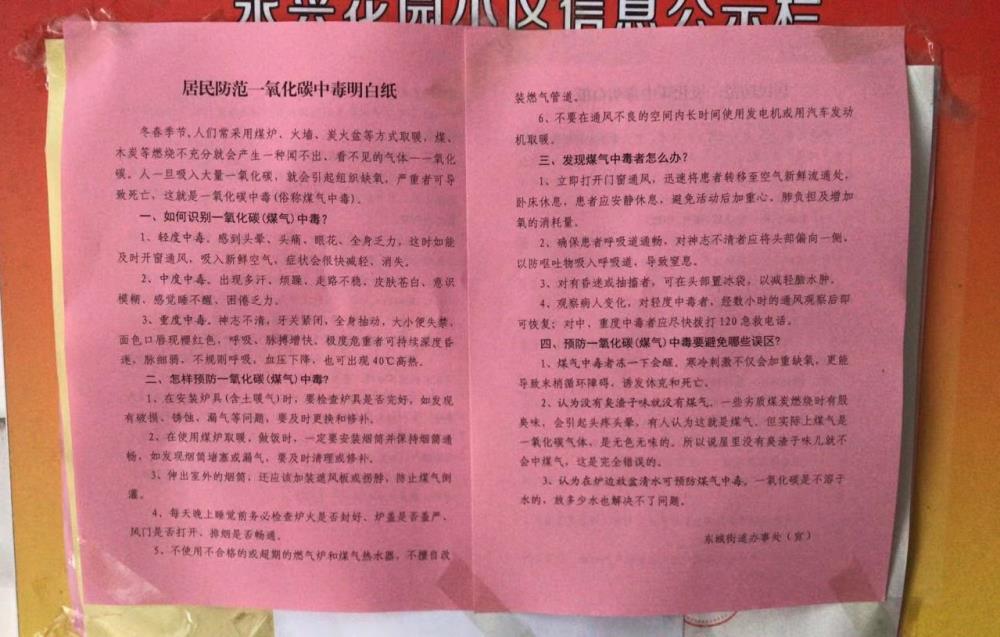 永兴花园小区信息公示栏
居民防范一氧化碳中毒明白纸
冬春季节,人们常采用煤炉、火墙、炭火盆等方式取暖，煤、
木炭等燃烧不充分就会产生一种闻不出、看不见的气体——一氧化
碳。人一旦吸入大量一氧化碳，就会引起组织缺氧，严重者可导
致死亡，这就是一氧化碳中毒(俗称煤气中毒)。
一、如何识别一氧化碳(煤气)中毒?
1、轻度中毒。感到头晕、头痛、眼花、全身乏力，这时如能
及时开窗通风，吸入新鲜空气，症状会很快减轻、消失。
2、中度中毒。出现多汗、烦躁、走路不稳、皮肤苍白、意识
模糊、感觉睡不醒、困倦乏力。
3、重度中毒。神志不清，牙关紧闭，全身抽动，大小便失禁，
面色口唇现樱红色，呼吸、脉搏增快。极度危重者可持续深度昏
迷，脉细弱，不规则呼吸，血压下降，也可出现40℃高热。
二、怎样预防一氧化碳(煤气)中毒?
1、在安装炉具(含土暖气)时，要检查炉具是否完好，如发现
有破损、锈蚀、漏气等问题，要及时更换和修补。
2、在使用煤炉取暖，做饭时，一定要安装烟筒并保持烟筒通
畅，如发现烟筒堵塞或漏气，要及时清理或修补。
3、伸出室外的烟筒，还应该加装遮风板或拐脖，防止煤气倒
灌。
4、每天晚上睡觉前务必检查炉火是否封好、炉盖是否盖严、
风门是否打开、排烟是否畅通。
5、不使用不合格的或超期的燃气炉和煤气热水器，不擅自改
装燃气管道。
6、不要在通风不良的空间内长时间使用发电机或用汽车发动
机取暖。
三、发现煤气中毒者怎么办?
1、立即打开门窗通风，迅速将患者转移至空气新鲜流通处，
卧床休息，患者应安静休息，避免活动后加重心、肺负担及增加
氧的消耗量。
2、确保患者呼吸道通畅，对神志不清者应将头部偏向一侧，
以防呕吐物吸入呼吸道，导致窒息。
3、对有昏迷或抽搐者，可在头部置冰袋，以减轻脑水肿。
4、观察病人变化，对轻度中毒者，经数小时的通风观察后即
可恢复；对中、重度中毒者应尽快拨打120急救电话。
四、预防一氧化碳(煤气)中毒要避免哪些误区?
1、煤气中毒者冻一下会醒。寒冷刺激不仅会加重缺氧，更能
导致末梢循环障碍，诱发休克和死亡。
2、认为没有臭渣子味就没有煤气。一些劣质煤炭燃烧时有股
臭味，会引起头疼头晕，有人认为这就是煤气。但实际上煤气是
一氧化碳气体，是无色无味的。所以说屋里没有臭渣子味儿就不
会中煤气，这是完全错误的。
3、认为在炉边放盆清水可预防煤气中毒。一氧化碳是不溶于
水的，放多少水也解决不了问题。
东城街道办事处（宣）